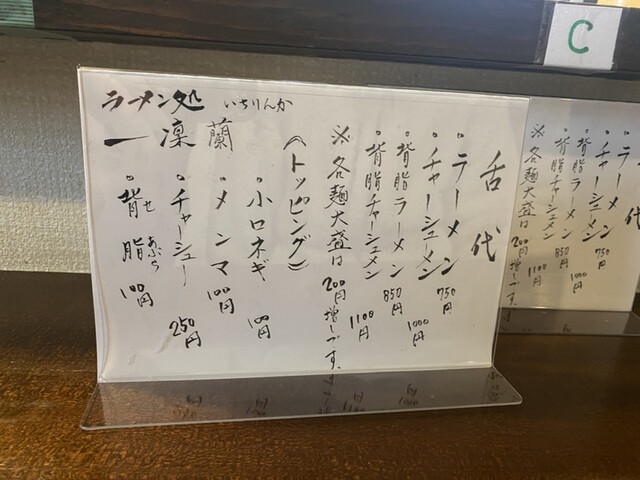 C
ラーメン処 いちりんか
一凜蘭
舌代
・ラーメン 750円
・チャーシューメン 1000円
・背脂ラーメン 850円
・背脂チャーシューメン 1100円
※各麺大盛は200円増しです。
(トッピング)
・小口ネギ 100円
・メンマ 100円
・チャーシュー 250円
・背脂 せあぶら 100円
代
ラーメン 750円
・チャーシューメン 1000円
・背脂ラーメン 850円
・背脂チャーシューメン 1100円
※各麺大盛は200円増しです。